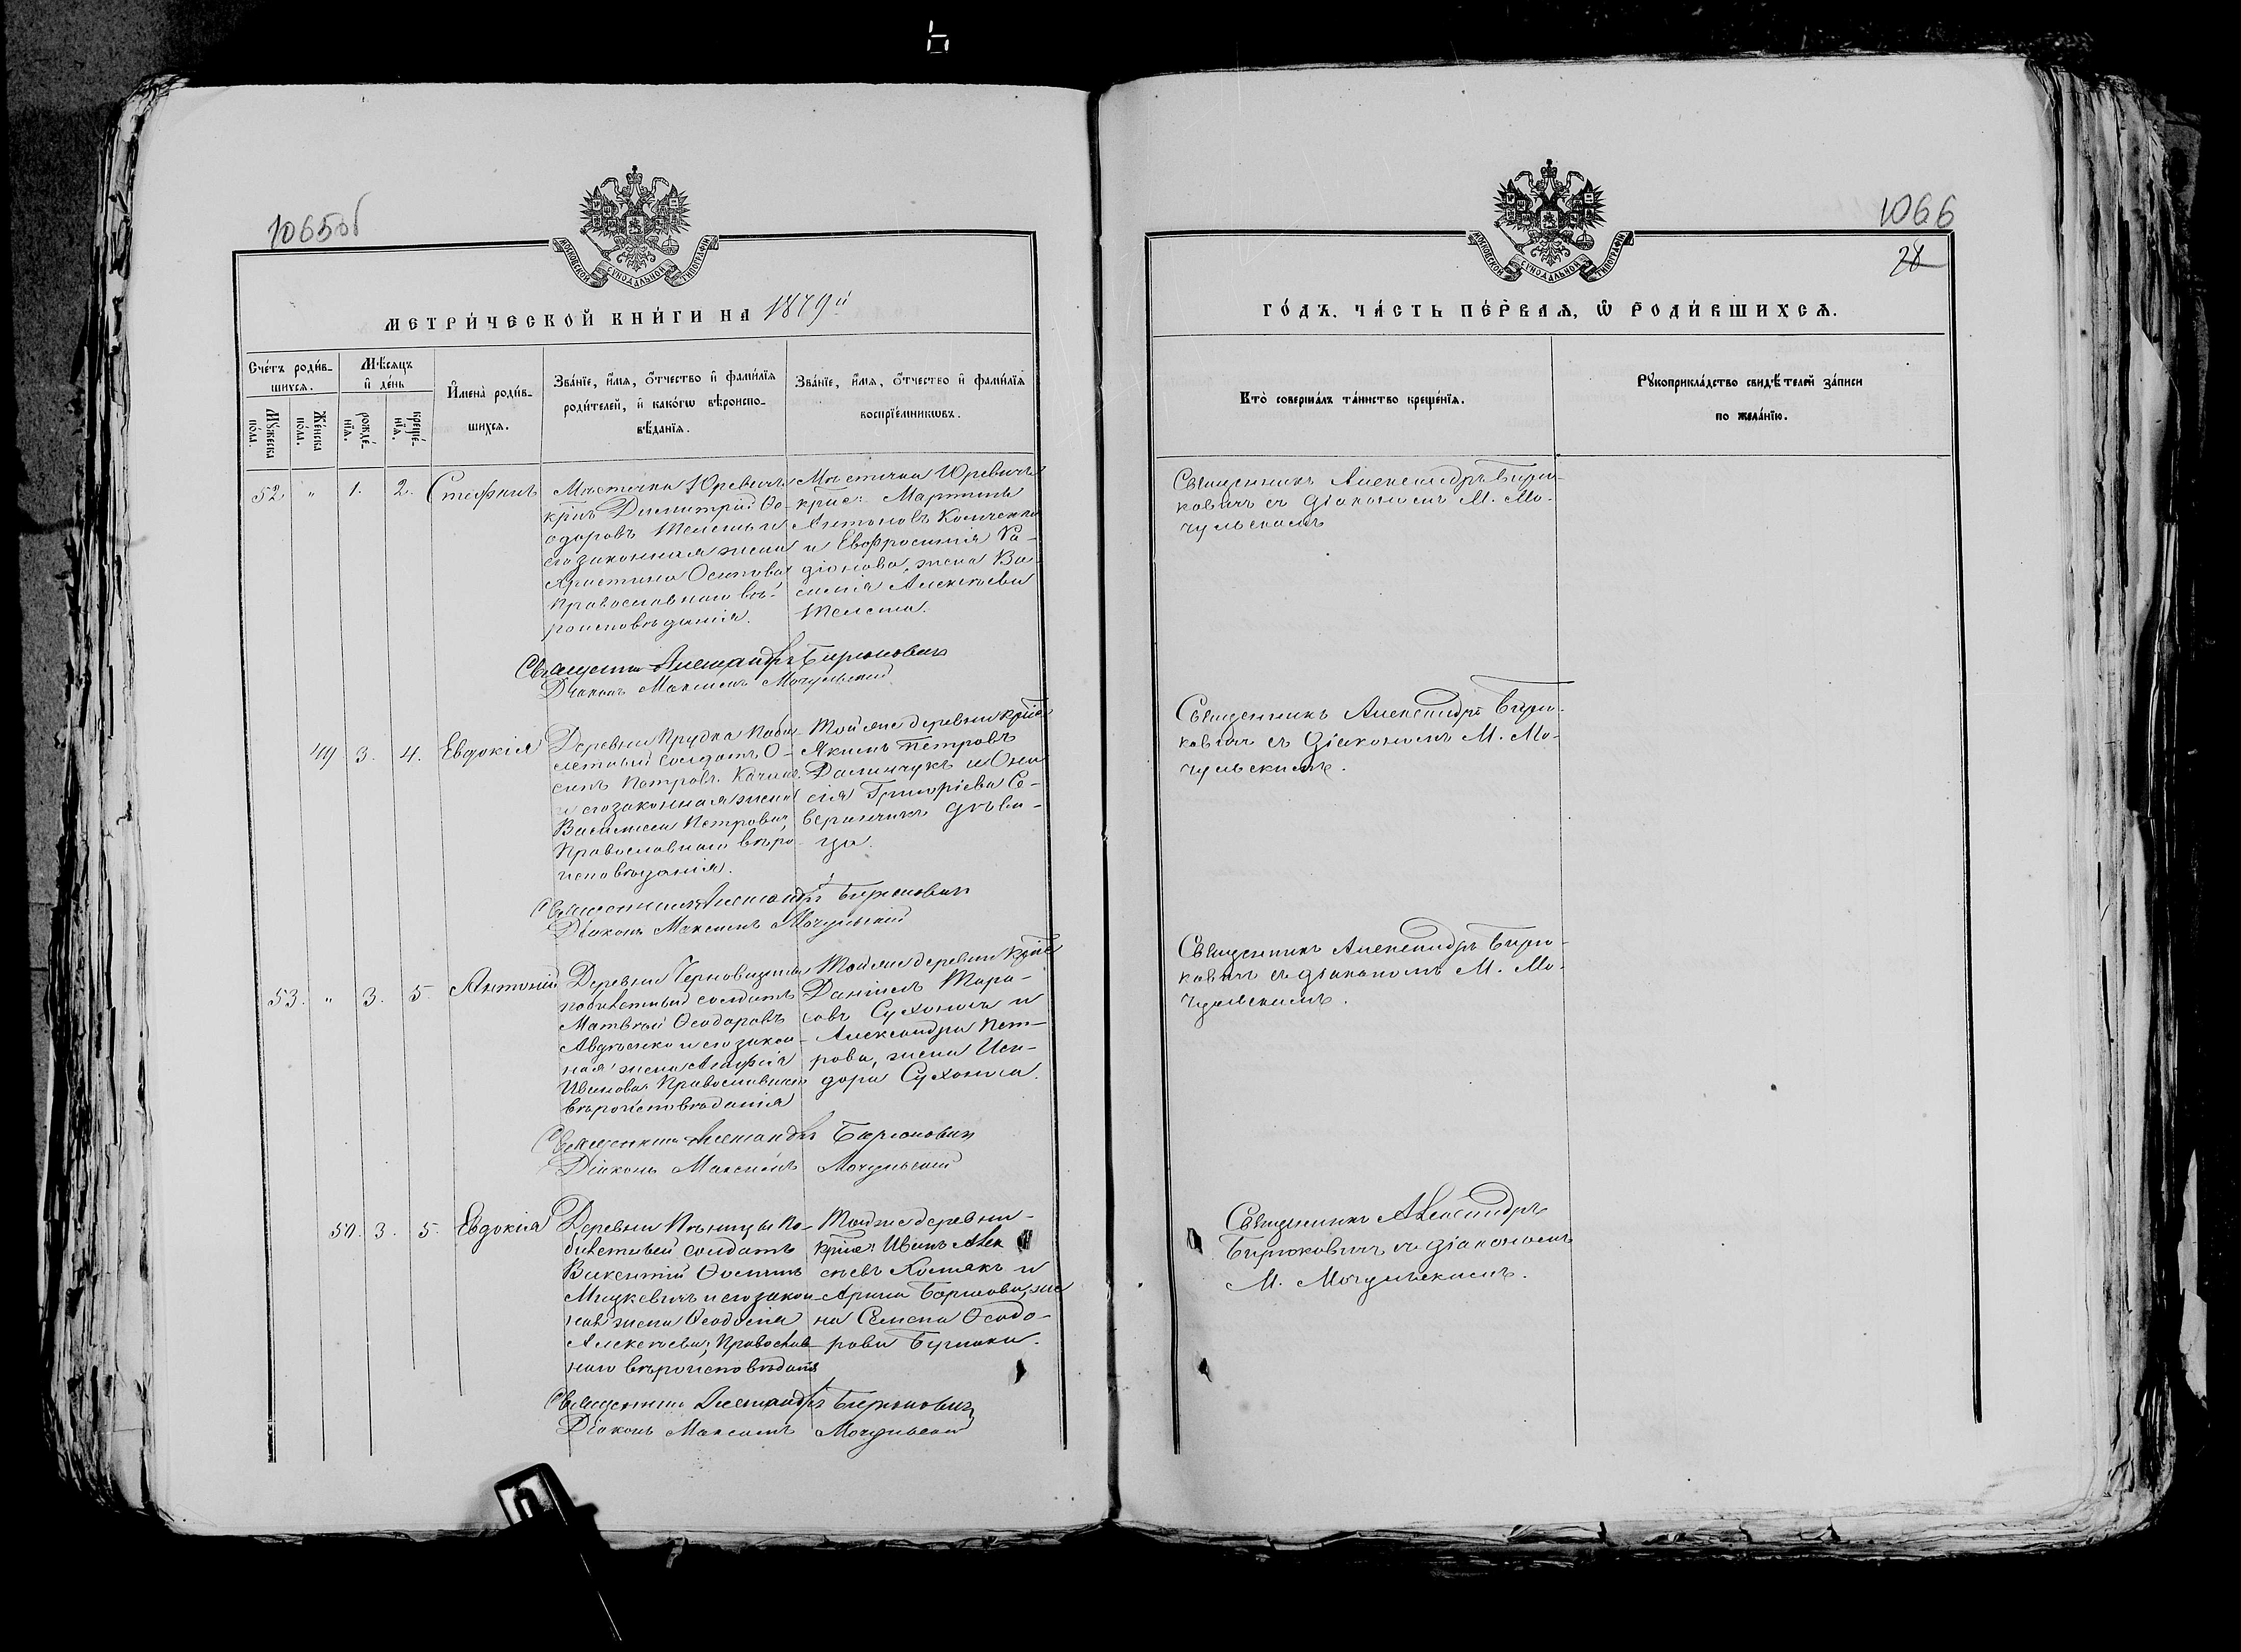 1065об
МОСКОВСКОЙ СѴНОДАЛЬНОЙ ТИПОГРАФІИ
МЕТРИ́ЧЕСКОЙ КНИ́ГИ НА 1879й
Сче́тъ роди́в-
шихся.
Мѣ́сяцъ
и҆ де́нь
Му́жеска
по́ла.
Же́нска
по́ла.
рожде́-
нїя.
креще́-
нїя.
И҆мена̀ роди́в-
шихся.
Зва́нїе, и҆́мя, ѻ҆́тчество и҆ фами́лїя
роди́телей, и҆ како́гѡ вѣроиспо-
вѣ́данїя.
Зва́нїе, и҆́мя, ѻ҆́тчество и҆ фами́лїя
воспрїе́мникѡвъ.
52 " 1. 2. Стефанъ
Мѣстечка Юревичъ
крнъ Димитрій Ѳе-
одоровъ и
его законная жена
Христина Осипова
Православнаго вѣ-
роисповѣданія.
Мѣстечка Юревичъ
Мартинъ
Антоновъ
и Евфросинія Ра-
діонова, жена Ва-
силія Алексѣева
Священникъ Александръ Бирюковичъ
Діаконъ Максимъ Мочульскій
49 3. 4. Евдокія
Деревни Прудка
билетный солдатъ О-
сипъ Петровъ
и его законная жена
Василиса Петрова,
Православнаго вѣро-
исповѣданія.
Той же деревни
Якимъ Петровъ
и Они-
сія Григоріева Се-
веринчикъ дѣви-
ца.
Священникъ Александръ Бирюковичъ
Діаконъ Максимъ Мочульскій
53. " 3. 5. Антоній
Деревни
билетный солдатъ
Матвѣй Ѳеодоровъ
Авдѣенко и его закон-
ная жена Агафія
Иванова Православнаго
вѣроисповѣданія
Той же деревни
Даніилъ Тара-
совъ и
Александра Пет-
рова, жена Иси-
дора
Священникъ Александръ Бирюковичъ
Діаконъ Максимъ Мочульскій
50. 3. 5. Евдокія
Деревни по-
билетный солдатъ
Викентій
Мицкевичъ и его закон-
ная жена Ѳеодосія
Алексѣева; Православ-
наго вѣроисповѣданія
Той же деревни
Иванъ Алек
сѣевъ и
Арина же
на Семена Ѳеодо-
рова
Священникъ Александръ Бирюковичъ
Діаконъ Максимъ Мочульскій
1066
28
МОСКОВСКОЙ СѴНОДАЛЬНОЙ ТИПОГРАФІИ
ГО́ДЪ. ЧА́СТЬ ПЕ́РВАЯ, Ѡ҆ РОДИ́ВШИХСЯ.
Кто̀ соверша́лъ та́инство креще́нїя.
Рꙋкоприкла́дство свидѣ́телей за́писи
по жела́нїю.
Священникъ Александръ Бирю-
ковичъ съ діакономъ М. Мо-
чульскимъ
Священникъ Александръ Бирю-
ковичъ съ діакономъ М. Мо-
чульскимъ.
Священникъ Александръ Бирю-
ковичъ съ діакономъ М. Мо-
чульскимъ.
Священникъ Александръ
Бирюковичъ съ діакономъ
М. Мочульскимъ.